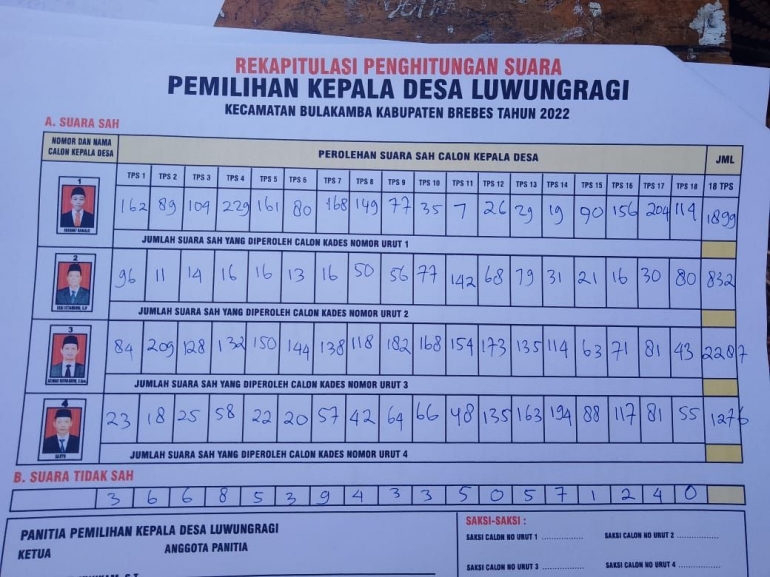 REKAPITULASI PENGHITUNGAN SUARA
PEMILIHAN KEPALA DESA LUWUNGRAGI
KECAMATAN BULAKAMBA KABUPATEN BREBES TAHUN 2022
A. SUARA SAH
NOMOR DAN NAMA CALON KEPALA DESA
PEROLEHAN SUARA SAH CALON KEPALA DESA
JML
TPS 1 TPS 2 TPS 3 TPS 4 TPS 5 TPS 6 TPS 7 TPS 8 TPS 9 TPS 10 TPS 11 TPS 12 TPS 13 TPS 14 TPS 15 TPS 16 TPS 17 TPS 18 18 TPS
1
162 89 109 229 161 80 168 149 77 35 7 26 29 19 90 156 204 114 1899
JUMLAH SUARA SAH YANG DIPEROLEH CALON KADES NOMOR URUT 1
2
96 11 14 16 16 13 16 50 56 77 142 68 79 31 21 16 30 80 832
JUMLAH SUARA SAH YANG DIPEROLEH CALON KADES NOMOR URUT 2
3
84 209 128 132 150 144 138 118 182 168 154 173 135 114 63 71 81 43 2287
JUMLAH SUARA SAH YANG DIPEROLEH CALON KADES NOMOR URUT 3
4
23 18 25 58 22 20 57 42 64 66 48 135 163 194 88 117 81 55 1276
JUMLAH SUARA SAH YANG DIPEROLEH CALON KADES NOMOR URUT 4
B. SUARA TIDAK SAH
3 6 6 8 5 3 9 4 3 3 5 0 5 7 1 2 4 0
PANITIA PEMILIHAN KEPALA DESA LUWUNGRAGI
KETUA ANGGOTA PANITIA
SAKSI-SAKSI :
SAKSI CALON NO URUT 1 ............... SAKSI CALON NO URUT 2 ...............
SAKSI CALON NO URUT 3 ............... SAKSI CALON NO URUT 4 ...............